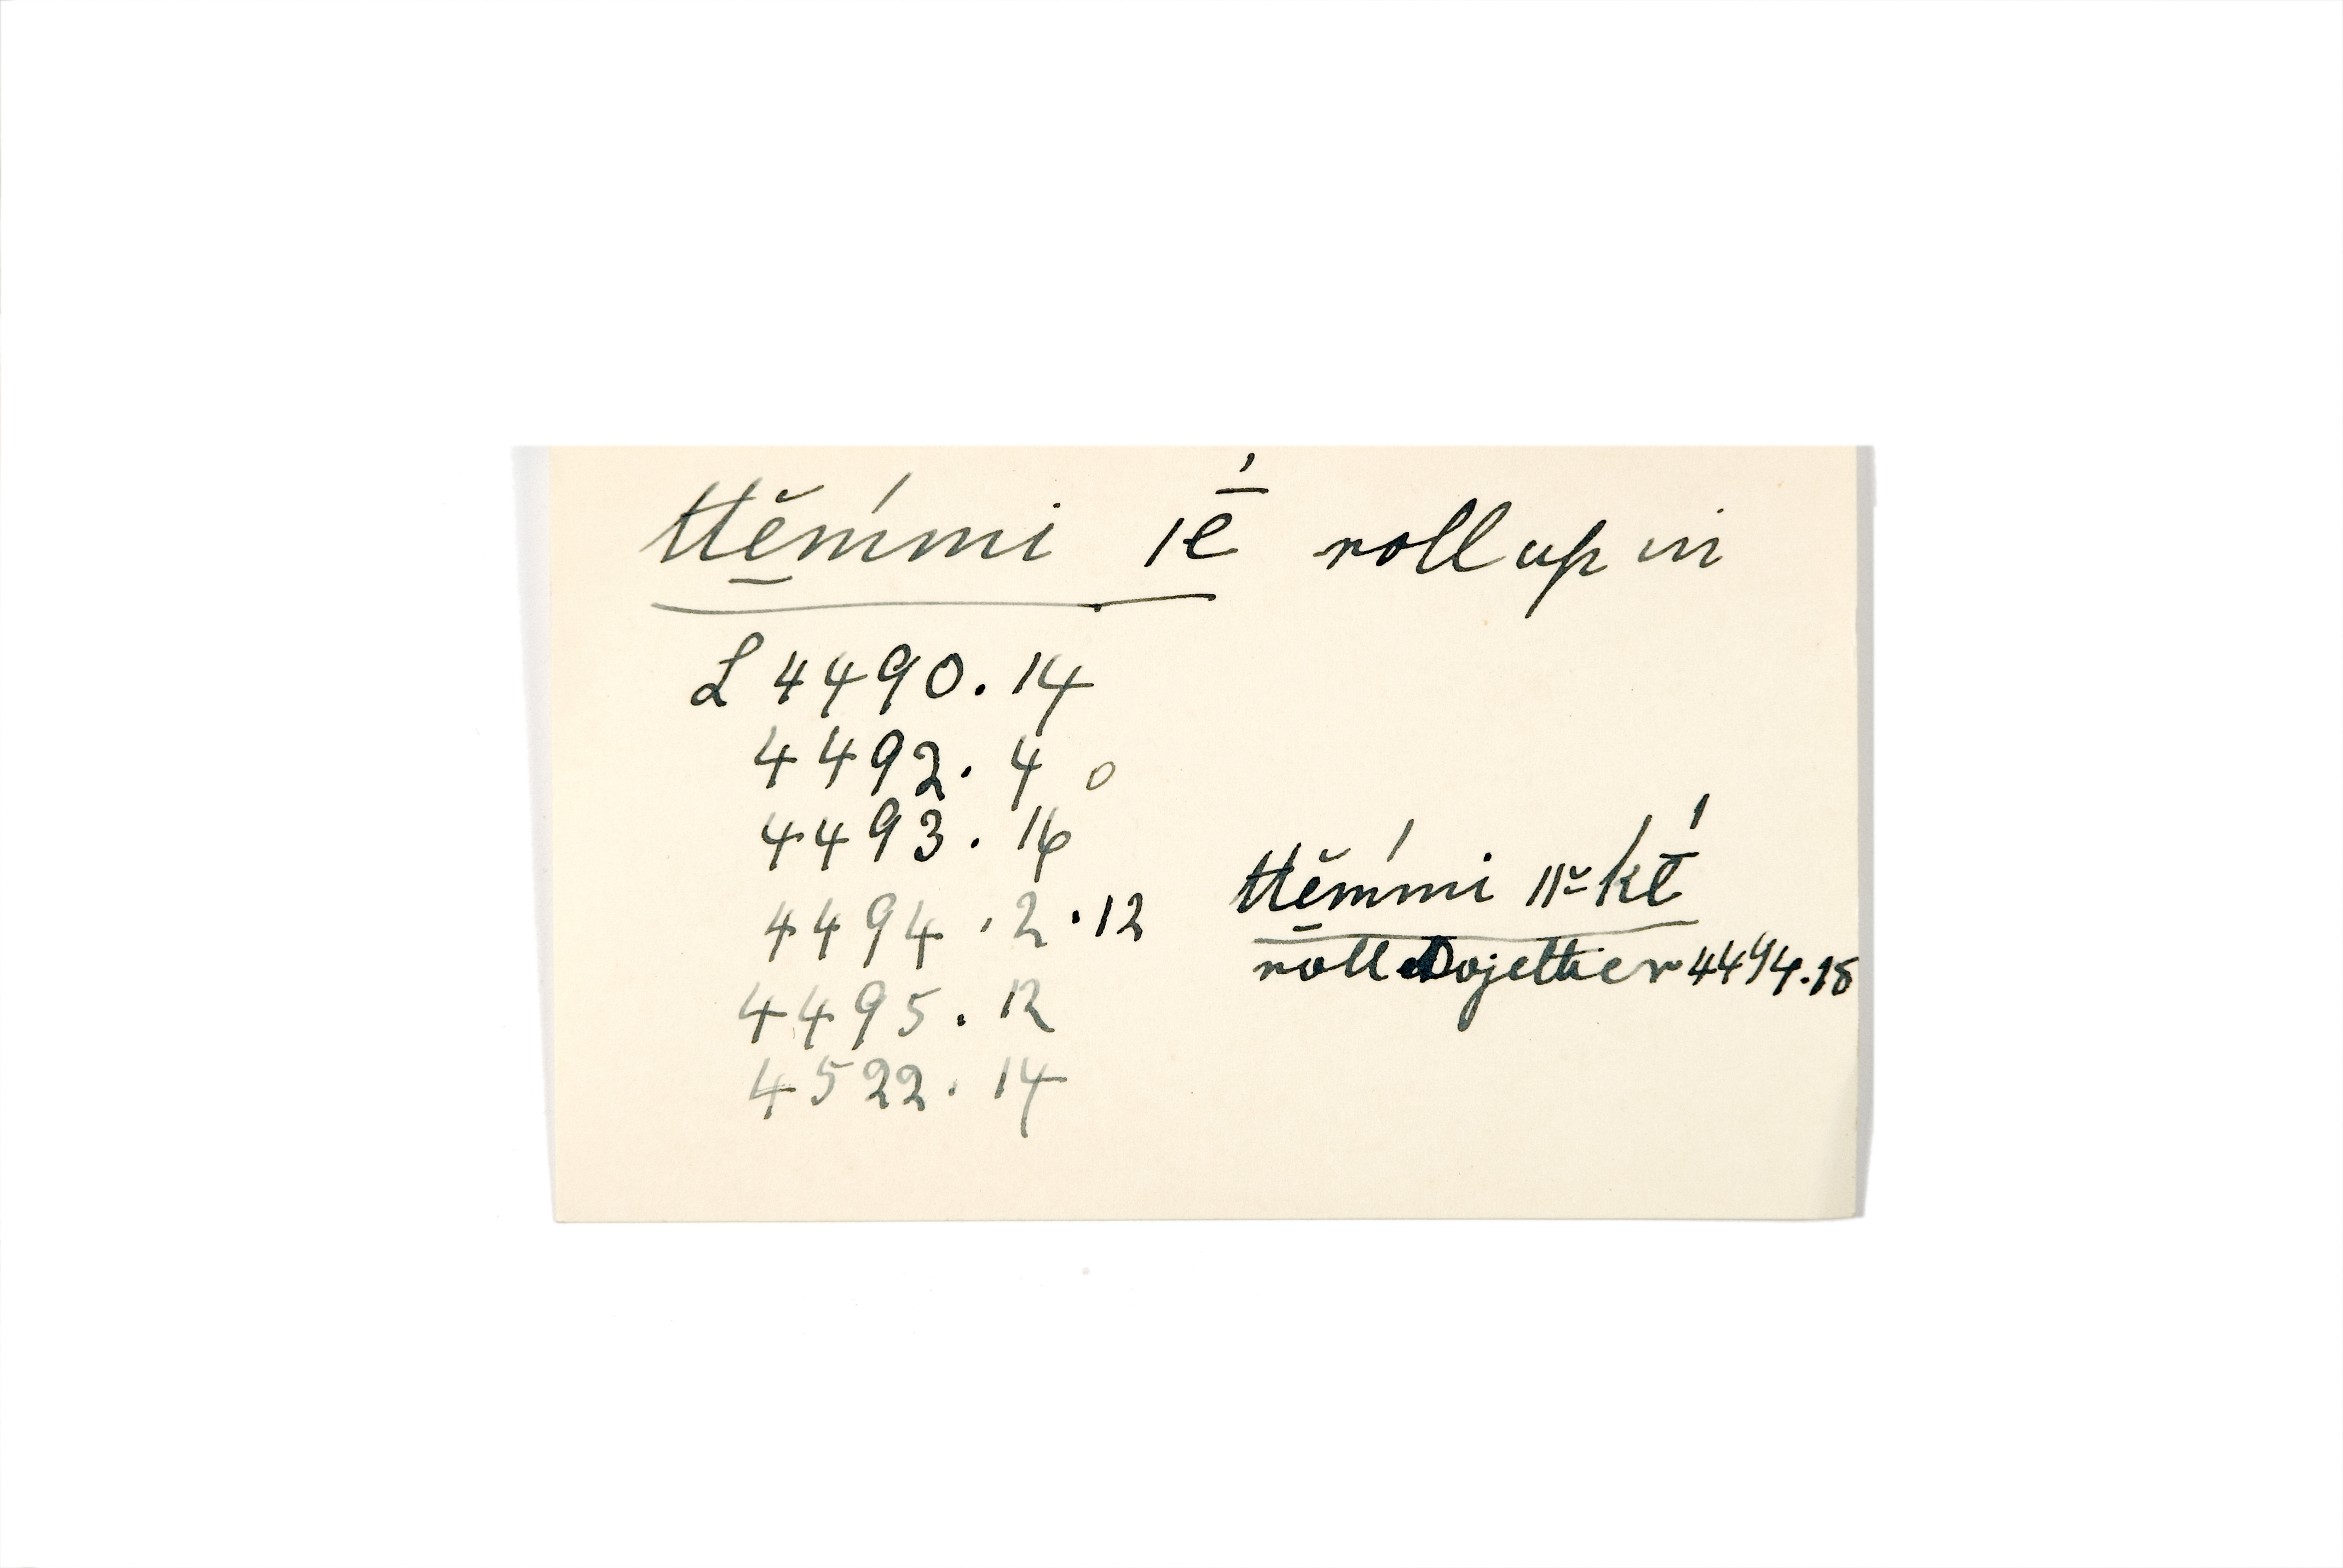 ttĕ̱m´mi ıḗ roll up in
L 4490. 14
4492. 4 0
4493. 16
4494 . 2 . 12
4495. 12
4522. 14
ttĕ̱m´mi
roll together 4494.18